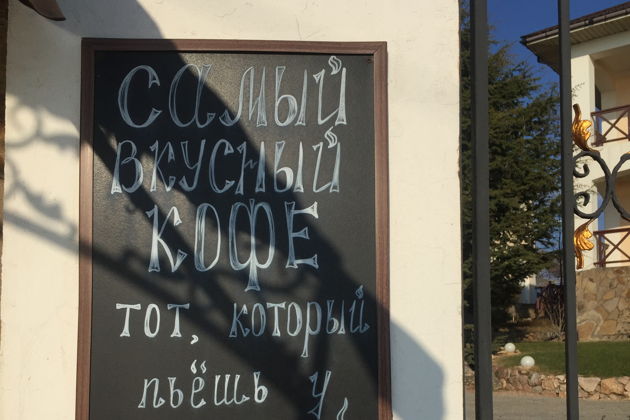 самый
вкусный
кофе
тот, который
пьёшь у